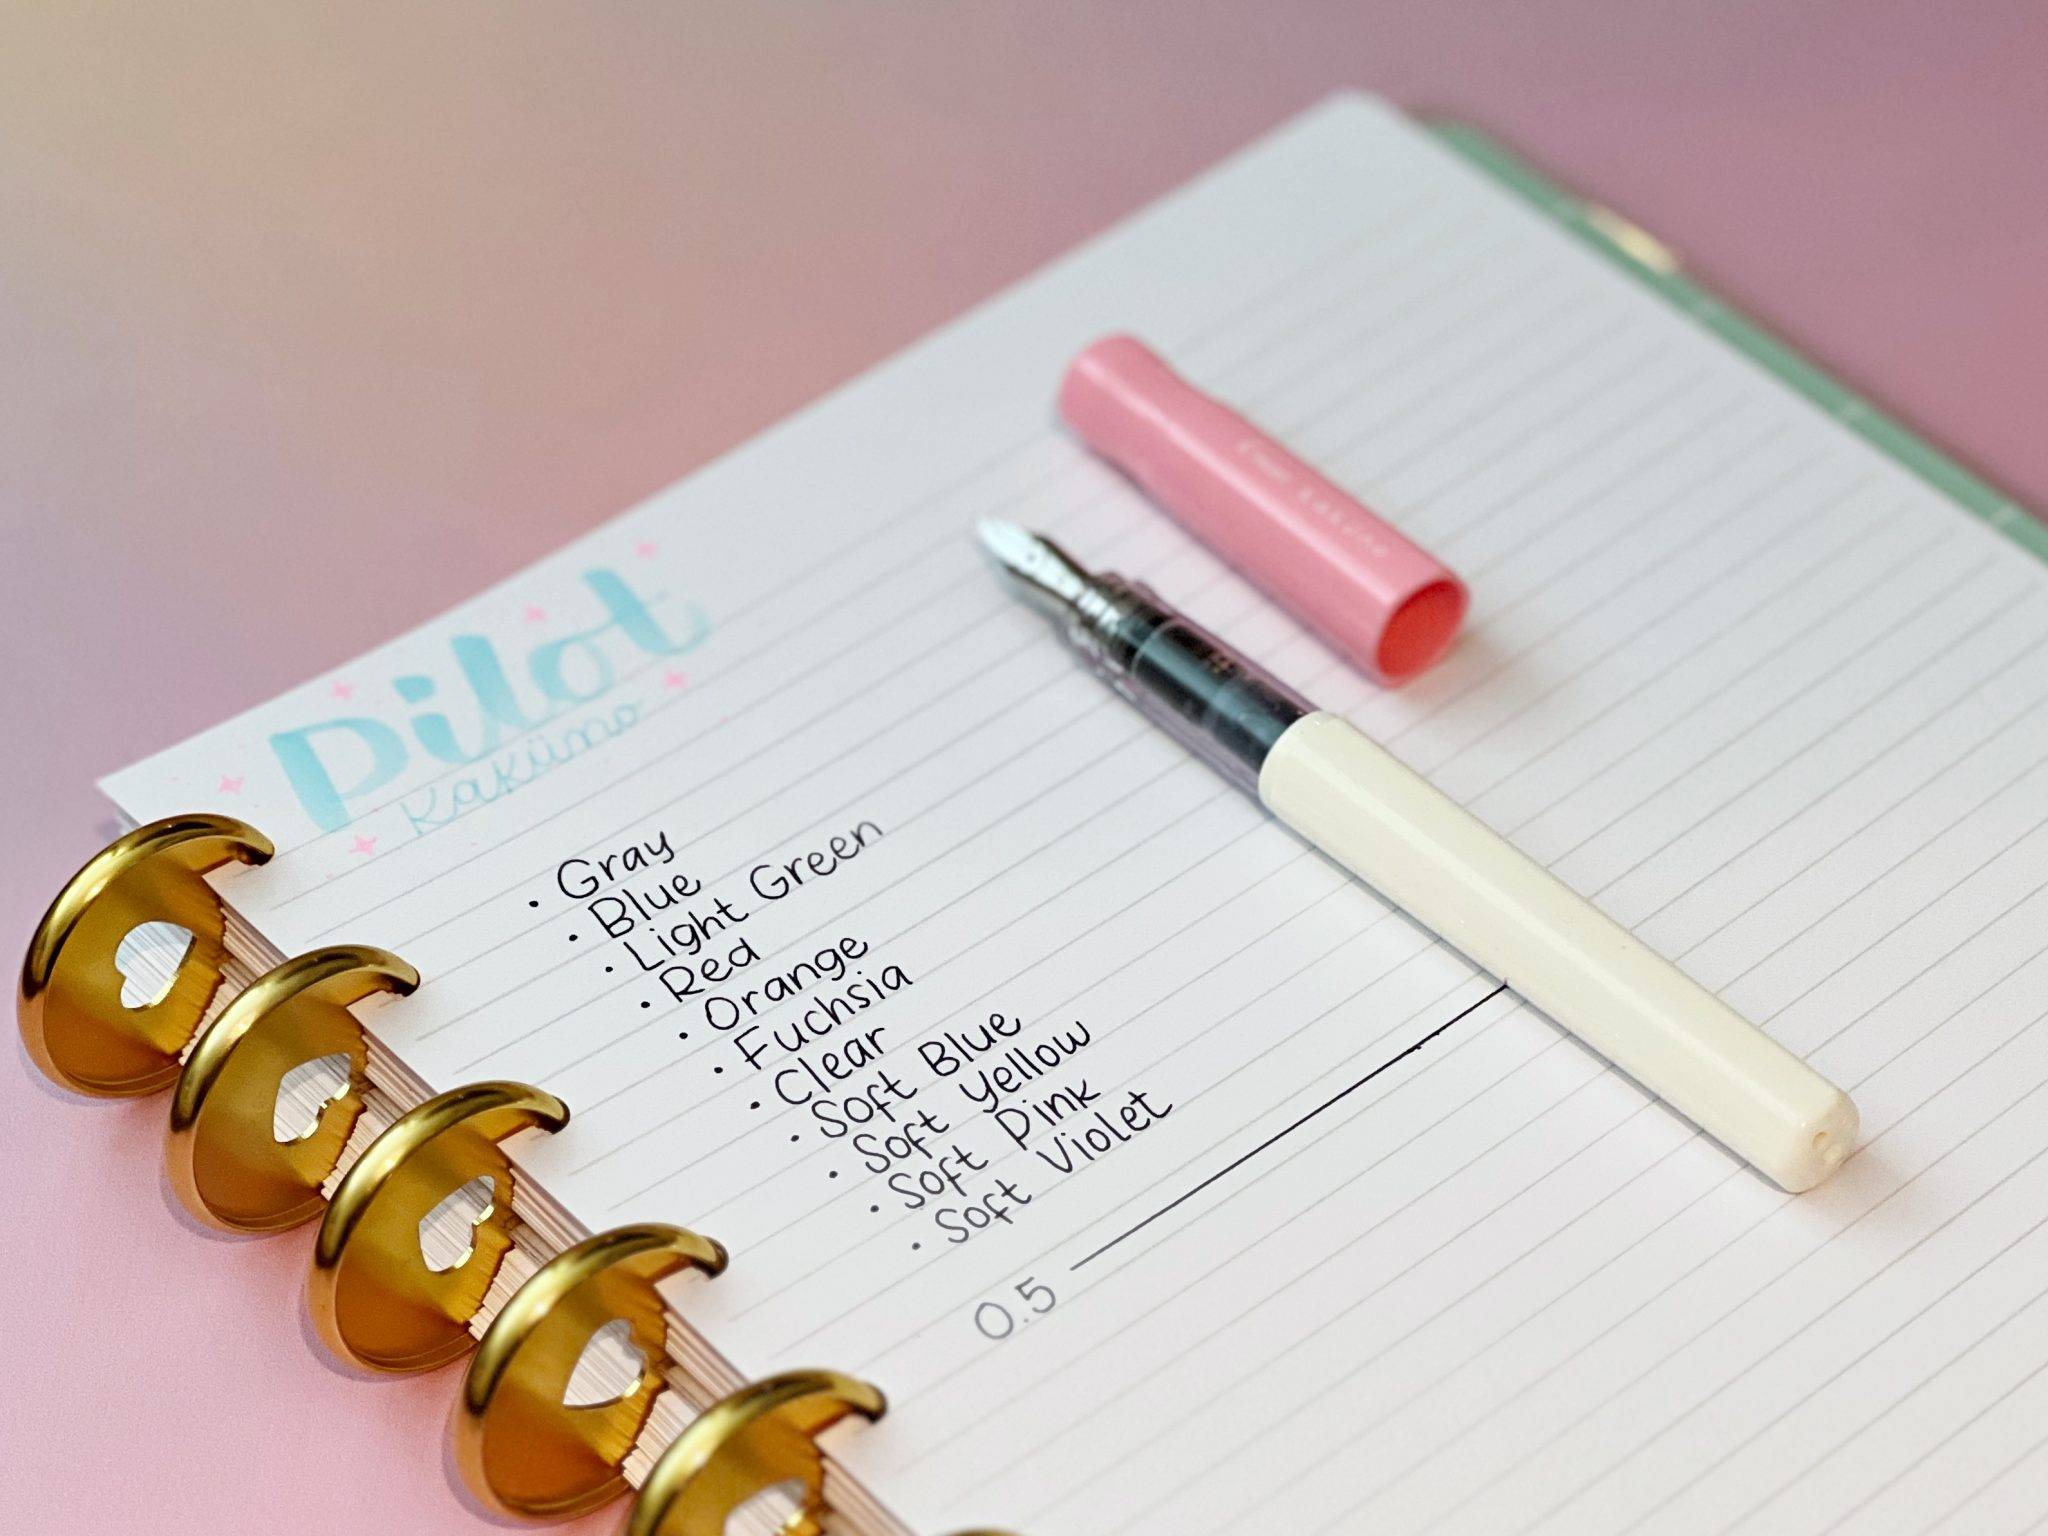 Pilot
Kaküno
• Gray
• Blue
• Light Green
• Red
• Orange
• Fuchsia
• Clear
• Soft Blue
• Soft Yellow
• Soft Pink
• Soft Violet
0.5
Kaküno